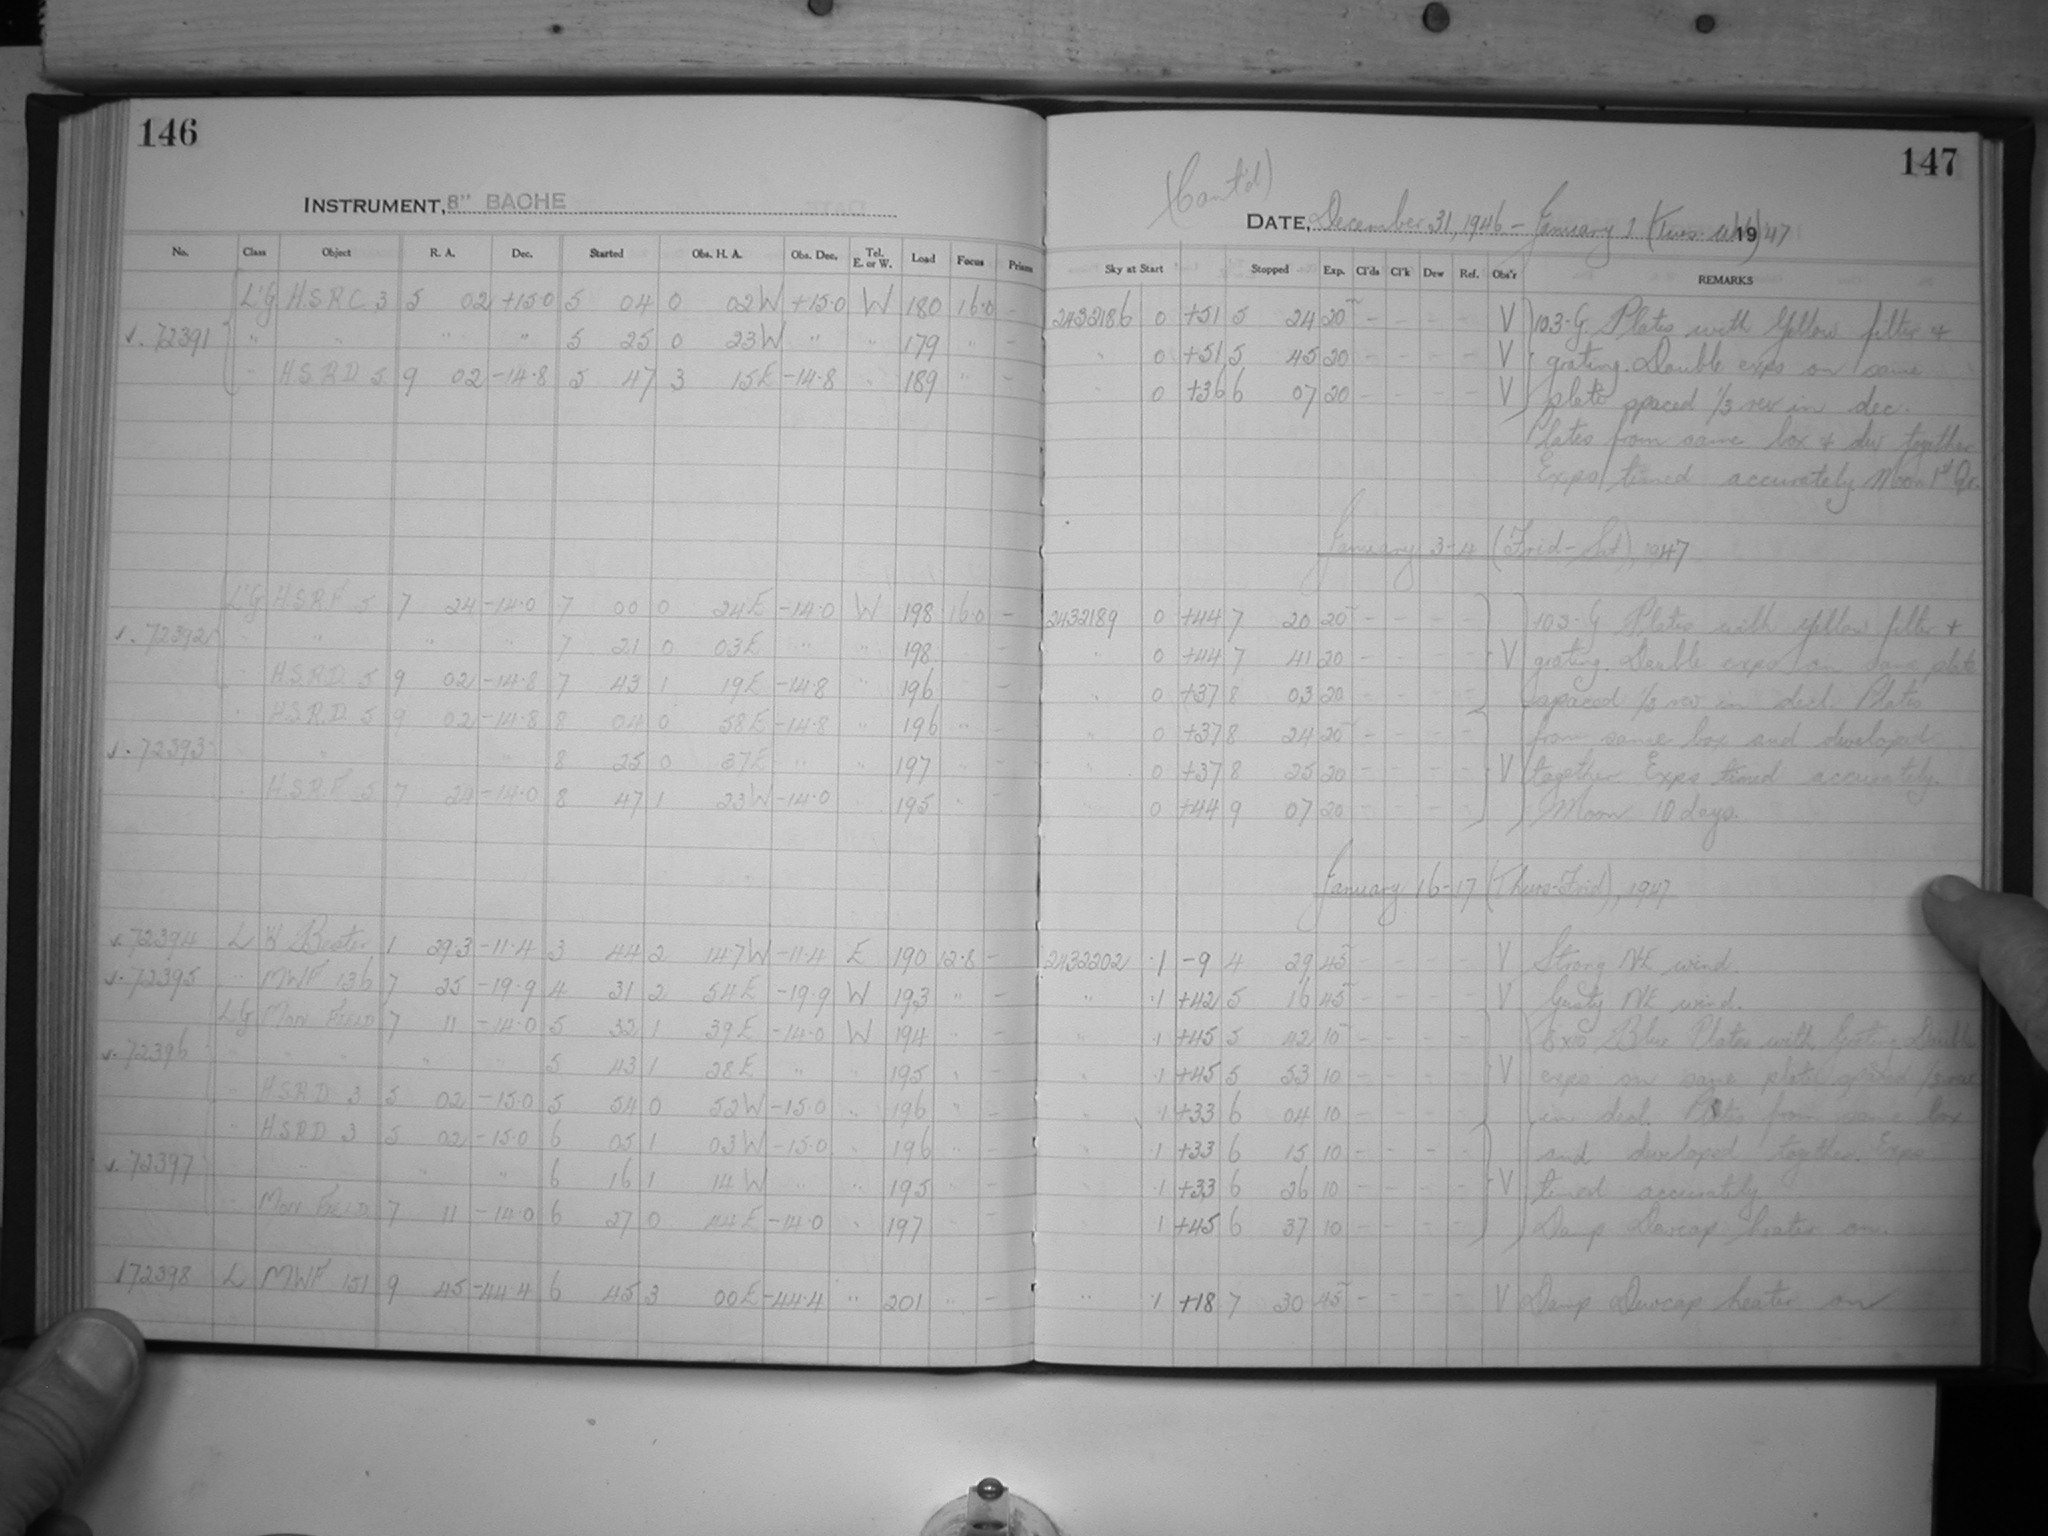 146
INSTRUMENT, 8" BACHE
No. Class Object R. A. Dec. Started Obs. H. A. Obs. Dec. Tel. E. or W. Load Focus Prisms
L'G H.S.R.C. 3 5 02 +15.0 5 04 0 02W +15.0 W 180 16.0 –
v. 72391 " " " " 5 25 0 23W " " 179 " –
" H.S.R.D. 5 9 02 -14.8 5 47 3 15E -14.8 " 189 " –
L'G H.S.R.F. 5 7 24 -14.0 7 00 0 24E -14.0 W 198 16.0 –
v. 72392 " " " 7 21 0 03E " " 198 –
H.S.R.D. 5 9 02 -14.8 7 43 1 19E -14.8 " 196 –
" H.S.R.D. 5 9 02 -14.8 8 04 0 58E -14.8 " 196 " –
v. 72393 " " 8 25 0 37E " " 197 –
H.S.R.F. 5 7 24 -14.0 8 47 1 23W -14.0 195 –
v. 72394 L 1 29.3 -11.4 3 44 2 14.7W -11.4 E 190 12.8 –
v. 72395 " MWF 136 7 25 -19.9 4 31 2 54E -19.9 W 193 " –
LG MON FIELD 7 11 -14.0 5 32 1 39E -14.0 W 194 –
v. 72396 " " " 5 43 1 28E " " 195 –
H.S.R.D 3 5 02 -15.0 5 54 0 52W -15.0 " 196 " –
" H.S.R.D 3 5 02 -15.0 6 05 1 03W -15.0 " 196 –
v. 72397 " " 6 16 1 14W " " 195 –
MON FIELD 7 11 -14.0 6 27 0 44E -14.0 " 197 –
172398 L MWF 151 9 45 -44.4 6 45 3 00E -44.4 " 201 " –
147
(Cont'd)
DATE, December 31, 1946 – January 1 (Tues-Wed) 19 47
Sky at Start Stopped Exp. Cl'ds Cl'k Dew Ref. Obs'r REMARKS
2432186 0 +51 5 24 20 – – – – V 103-G Plates with Yellow filter +
" 0 +51 5 45 20 – – – – V grating. Double exps on same
0 +36 6 07 20 – – – – V plate spaced 1/3 rev in dec.
Plates from same box + dev together
Exps timed accurately. Moon 1st Qr.
January 3-4 (Frid-Sat), 1947
2432189 0 +44 7 20 20 – – – – 103-G Plates with Yellow filter +
" 0 +44 7 41 20 – – – – V grating. Double exps on same plate
" 0 +37 8 03 20 – – – – spaced 1/3 rev in decl. Plates
" 0 +37 8 24 20 – – – – from same box and developed
0 +37 8 25 20 – – – – V together. Exps timed accurately.
0 +44 9 07 20 – – – – Moon 10 days.
January 16-17 (Thurs-Frid), 1947
2432202 .1 -9 4 29 45 – – – – V Strong NE wind
" .1 +42 5 16 45 – – – – V Gusty NE wind.
" .1 +45 5 42 10 – – – – 8x10 Blue Plates with Grating. Double
.1 +45 5 53 10 – – – – V exps on same plate spaced 1/3 rev
.1 +33 6 04 10 – – – – in decl. Plates from same box
.1 +33 6 15 10 – – – – and developed together. Exps
.1 +33 6 26 10 – – – – V timed accurately
.1 +45 6 37 10 – – – – Damp Dewcap heater on.
" .1 +18 7 30 45 – – – – V Damp Dewcap heater on